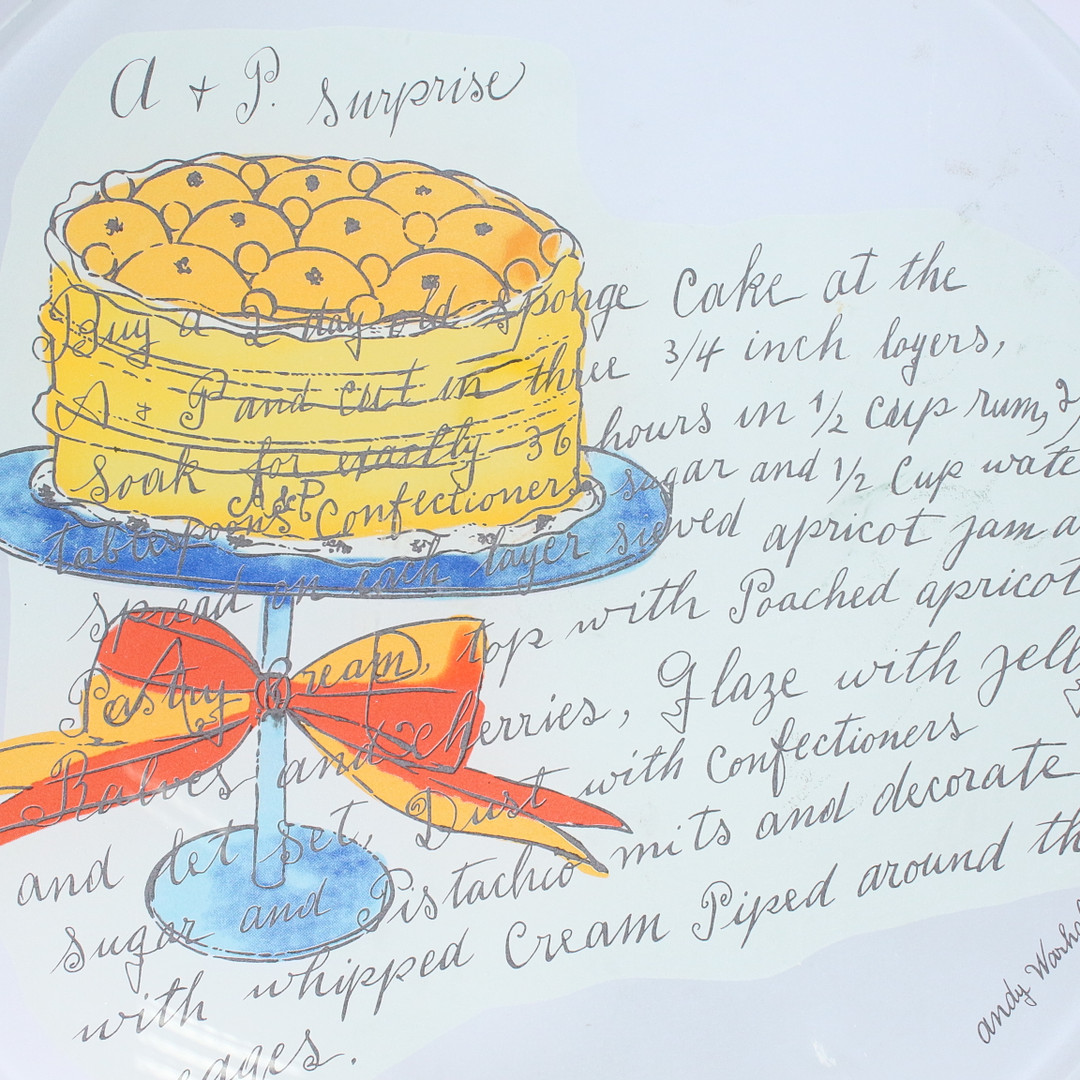 A + P. surprise
Buy a 2 day old sponge Cake at the
A & P and cut in three 3/4 inch layers,
soak for exactly 36 hours in 1/2 cup rum, 2
tablespoons Confectioners sugar and 1/2 Cup wate
A&P
spread on each layer sieved apricot jam a
Pastry Cream, top with Poached apricot
Halves and cherries, Glaze with jell
and let set, Dust with confectioners
sugar and Pistachio mits and decorate
with whipped Cream Piped around th
edges.
andy Warho